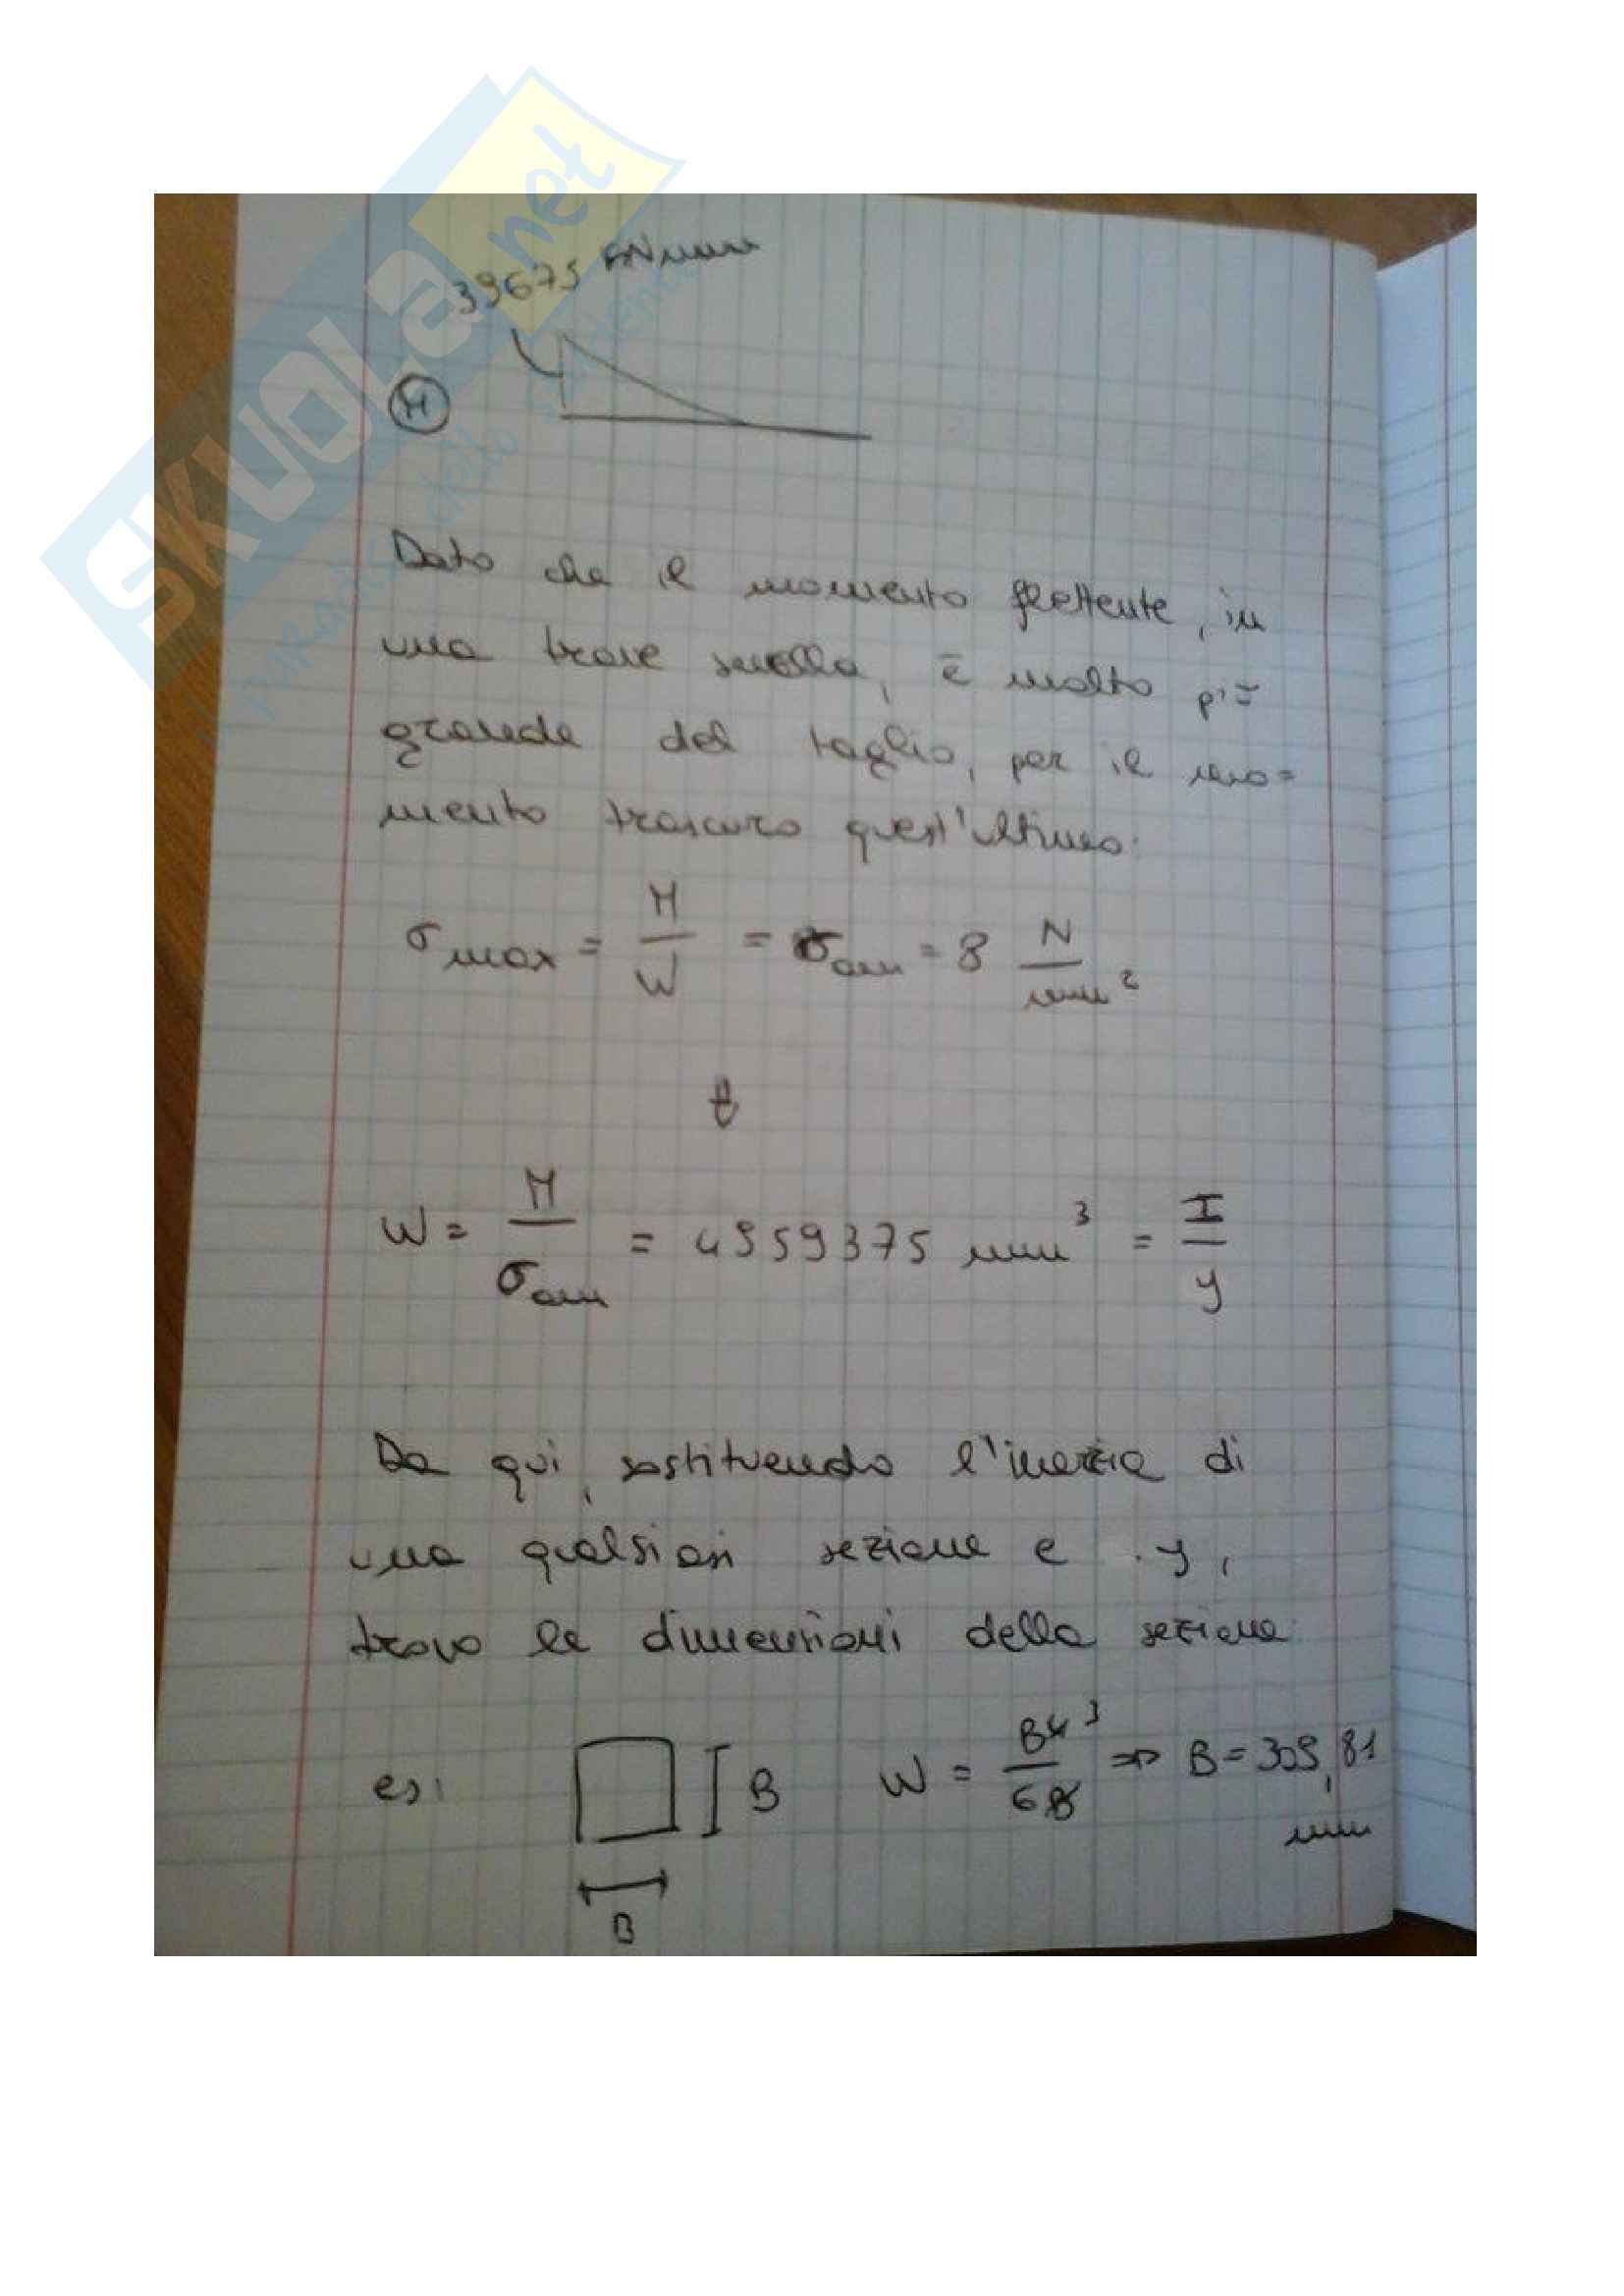 SKUOLA.net
39675 kNmm
M
Dato che il momento flettente, in
una trave snella, è molto più
grande del taglio, per il mo=
mento trascuro quest'ultimo:
σmax = M/W = σam = 8 N/mm²
⇓
W = M/σam = 4959375 mm³ = I/y
Da qui, sostituendo l'inerzia di
una qualsiasi sezione e y,
trovo le dimensioni della sezione
es: B W = B⁴³/6B => B = 309,81
mm
B